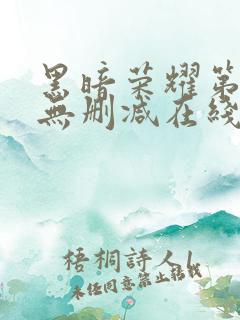 黑暗荣耀第
無删减在綫
梧桐詩人l
未径同意禁止转载